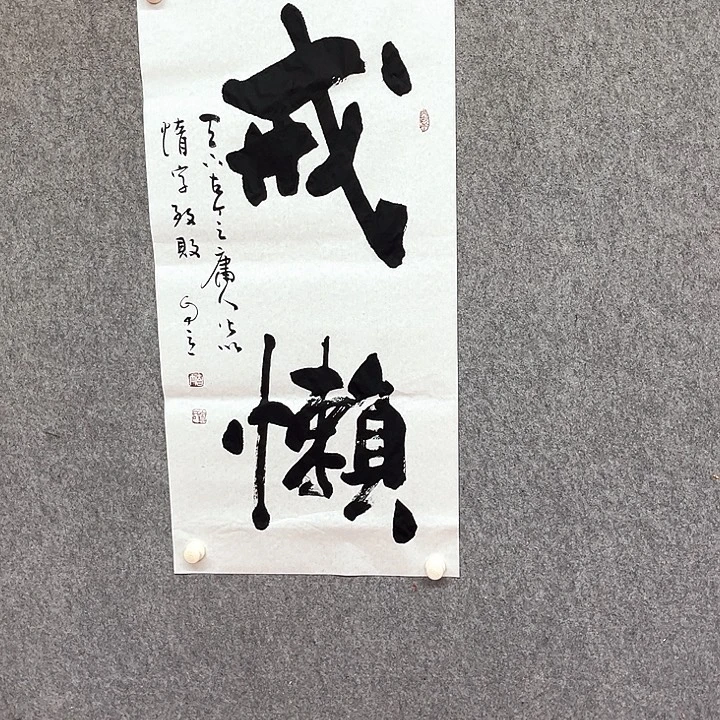 戒
懒
天下古今之庸人皆以
惰字致败